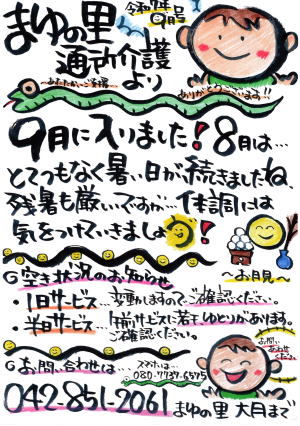 令和7年
9月号
まゆの里
通所介護
より
ありがとうございます!!
9月に入りました!8月は…
とてつもなく暑い日が続きましたね、
残暑も厳しいですが…体調には
気をつけていきましょう!
〜お月見〜
◎空き状況のお知らせ
・1日サービス…変動しますので、ご確認ください。
・半日サービス…午前サービスに若干ゆとりがあります。
ご確認ください。
◎お問い合わせは…
スマホは…
080-7737-6575
042-851-2061
お問い
あわせ
ください
まゆの里 大月まで